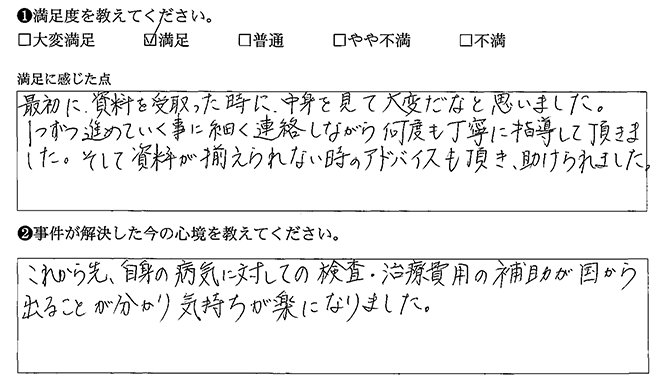 ❶満足度を教えてください。
□大変満足 ☑満足 □普通 □やや不満 □不満
満足に感じた点
最初に、資料を受取った時に、中身を見て大変だなと思いました。
1つずつ進めていく事に細く連絡しながら何度も丁寧に指導して頂きま
した。そして資料が揃えられない時のアドバイスも頂き、助けられました。
❷事件が解決した今の心境を教えてください。
これから先、自身の病気に対しての検査・治療費用の補助が国から
出ることが分かり気持ちが楽になりました。